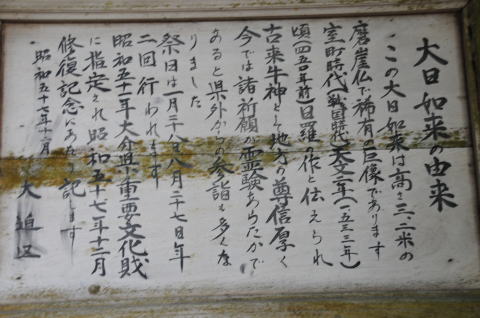 大日如来の由来
この大日如来は高さ三、二米の
磨崖仏で稀有の巨像であります
室町時代(戦国時代)天文二年(一五三三年)
頃(四五〇年前)日羅の作と伝えられ
古来牛神として地方の尊信厚く
今では諸祈願が霊験あらたかで
あると県外からの参詣も多くな
りました
祭日は一月二十八日八月二十七日年
二回行われます
昭和五十年大分県重要文化財
に指定され昭和五十七年十二月
修復記念にあたり記します
昭和五十七年十二月
大迫区